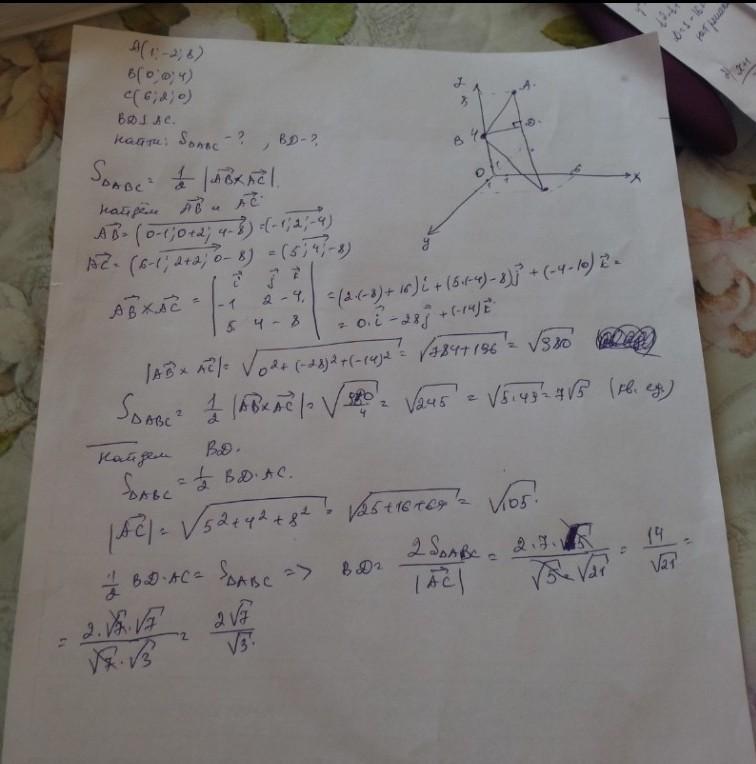 A(1;-2;8)
B(0;0;4)
C(6;2;0)
BD⊥AC.
Найти: S△ABC-? , BD-?
S△ABC = 1/2 |AB×AC|.
Найдём AB и AC
AB = (0-1; 0+2; 4-8) = (-1; 2; -4)
AC = (6-1; 2+2; 0-8) = (5; 4; -8)
AB×AC = | i j k |
| -1 2 -4 | = (2·(-8)+16)i + (5·(-4)-8)j + (-4-10)k =
| 5 4 -8 | = 0·i - 28j + (-14)k
|AB×AC| = √(0²+(-28)²+(-14)²) = √(784+196) = √980
S△ABC = 1/2 |AB×AC| = √(980/4) = √245 = √(5·49) = 7√5 (кв. ед.)
Найдем BD.
S△ABC = 1/2 BD·AC.
|AC| = √(5²+4²+8²) = √(25+16+64) = √105.
1/2 BD·AC = S△ABC => BD = 2S△ABC/|AC| = 2·7·√5/(√5·√21) = 14/√21 =
= 2·√7·√7/(√7·√3) = 2√7/√3.
z
8
A
B 4
D
O
1
1
1
6
x
y